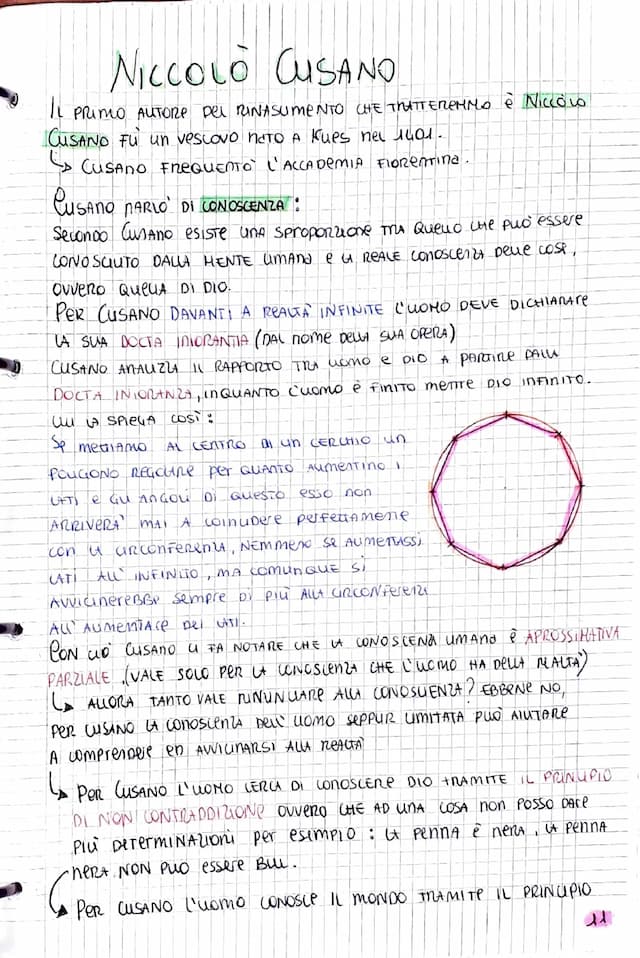 NICCOLÒ CUSANO
IL PRIMO AUTORE DEL RINASCIMENTO CHE TRATTEREMMO È NICCOLO
CUSANO FÙ UN VESCOVO NATO A KUES NEL 1401.
↳ CUSANO FREQUENTÒ L'ACCADEMIA FIORENTINA.
CUSANO PARLÒ DI CONOSCENZA:
SECONDO CUSANO ESISTE UNA SPROPORZIONE TRA QUELLO CHE PUÒ ESSERE
CONOSCIUTO DALLA MENTE UMANA E LA REALE CONOSCENZA DELLE COSE,
OVVERO QUELLA DI DIO.
PER CUSANO DAVANTI A REALTÀ INFINITE L'UOMO DEVE DICHIARARE
LA SUA DOCTA INIORANTIA (DAL NOME DELLA SUA OPERA)
CUSANO ANALIZZA IL RAPPORTO TRA UOMO E DIO A PARTIRE DALLA
DOCTA INIORANZA, INQUANTO L'UOMO È FINITO MENTRE DIO INFINITO.
LUI LA SPIEGA COSÌ:
SE METTIAMO AL CENTRO DI UN CERCHIO UN
POLIGONO REGOLARE PER QUANTO AUMENTINO I
LATI E GLI ANGOLI DI QUESTO ESSO NON
ARRIVERÀ MAI A COINCIDERE PERFETTAMENE
CON LA CIRCONFERENZA, NEMMENO SE AUMENTASSI
LATI ALL'INFINITO, MA COMUNQUE SI
AVVICINEREBBE SEMPRE DI PIÙ ALLA CIRCONFERENZA
ALL'AUMENTARE DEI LATI.
CON CIÒ CUSANO CI FA NOTARE CHE LA CONOSCENZA UMANA È APROSSIMATIVA
PARZIALE (VALE SOLO PER LA CONOSCENZA CHE L'UOMO HA DELLA REALTÀ)
↳ ALLORA TANTO VALE RINUNCIARE ALLA CONOSCENZA? EBBENE NO,
PER CUSANO LA CONOSCENZA DELL'UOMO SEPPUR LIMITATA PUÒ AIUTARE
A COMPRENDERE ED AVVICINARSI ALLA REALTÀ
↳ PER CUSANO L'UOMO CERCA DI CONOSCERE DIO TRAMITE IL PRINCIPIO
DI NON CONTRADDIZIONE OVVERO CHE AD UNA COSA NON POSSO DARE
PIÙ DETERMINAZIONI PER ESEMPIO: LA PENNA È NERA, LA PENNA
NERA NON PUÒ ESSERE BLU.
↳ PER CUSANO L'UOMO CONOSCE IL MONDO TRAMITE IL PRINCIPIO
11